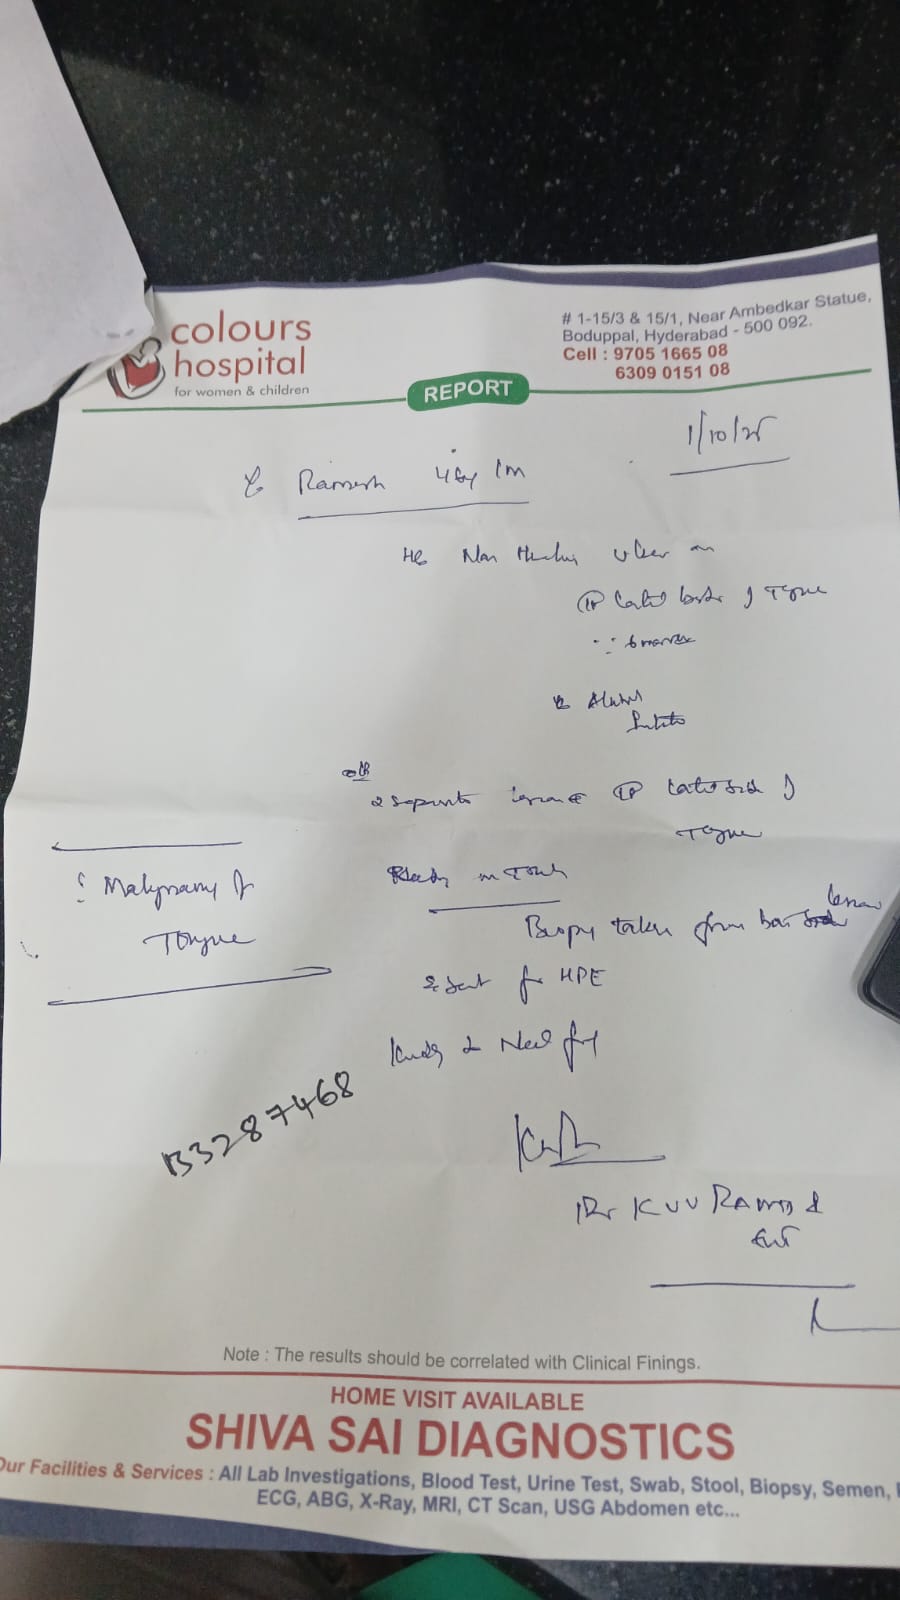 colours
hospital
for women & children
# 1-15/3 & 15/1, Near Ambedkar Statue,
Boduppal, Hyderabad - 500 092.
Cell : 9705 1665 08
6309 0151 08
REPORT
1/10/25
Ramesh 46y/m
H/o Non Healing ulcer on
lateral border of Tongue
6 months
o/e
2 separate lesions lateral side of
Tongue
Bleeds on Touch
? Malignancy of
Tongue
Biopsy taken from both lesion
& sent for HPE
Kindly do Needful
B3287468
Dr KVV
ENT
Note : The results should be correlated with Clinical Finings.
HOME VISIT AVAILABLE
SHIVA SAI DIAGNOSTICS
Our Facilities & Services : All Lab Investigations, Blood Test, Urine Test, Swab, Stool, Biopsy, Semen,
ECG, ABG, X-Ray, MRI, CT Scan, USG Abdomen etc...